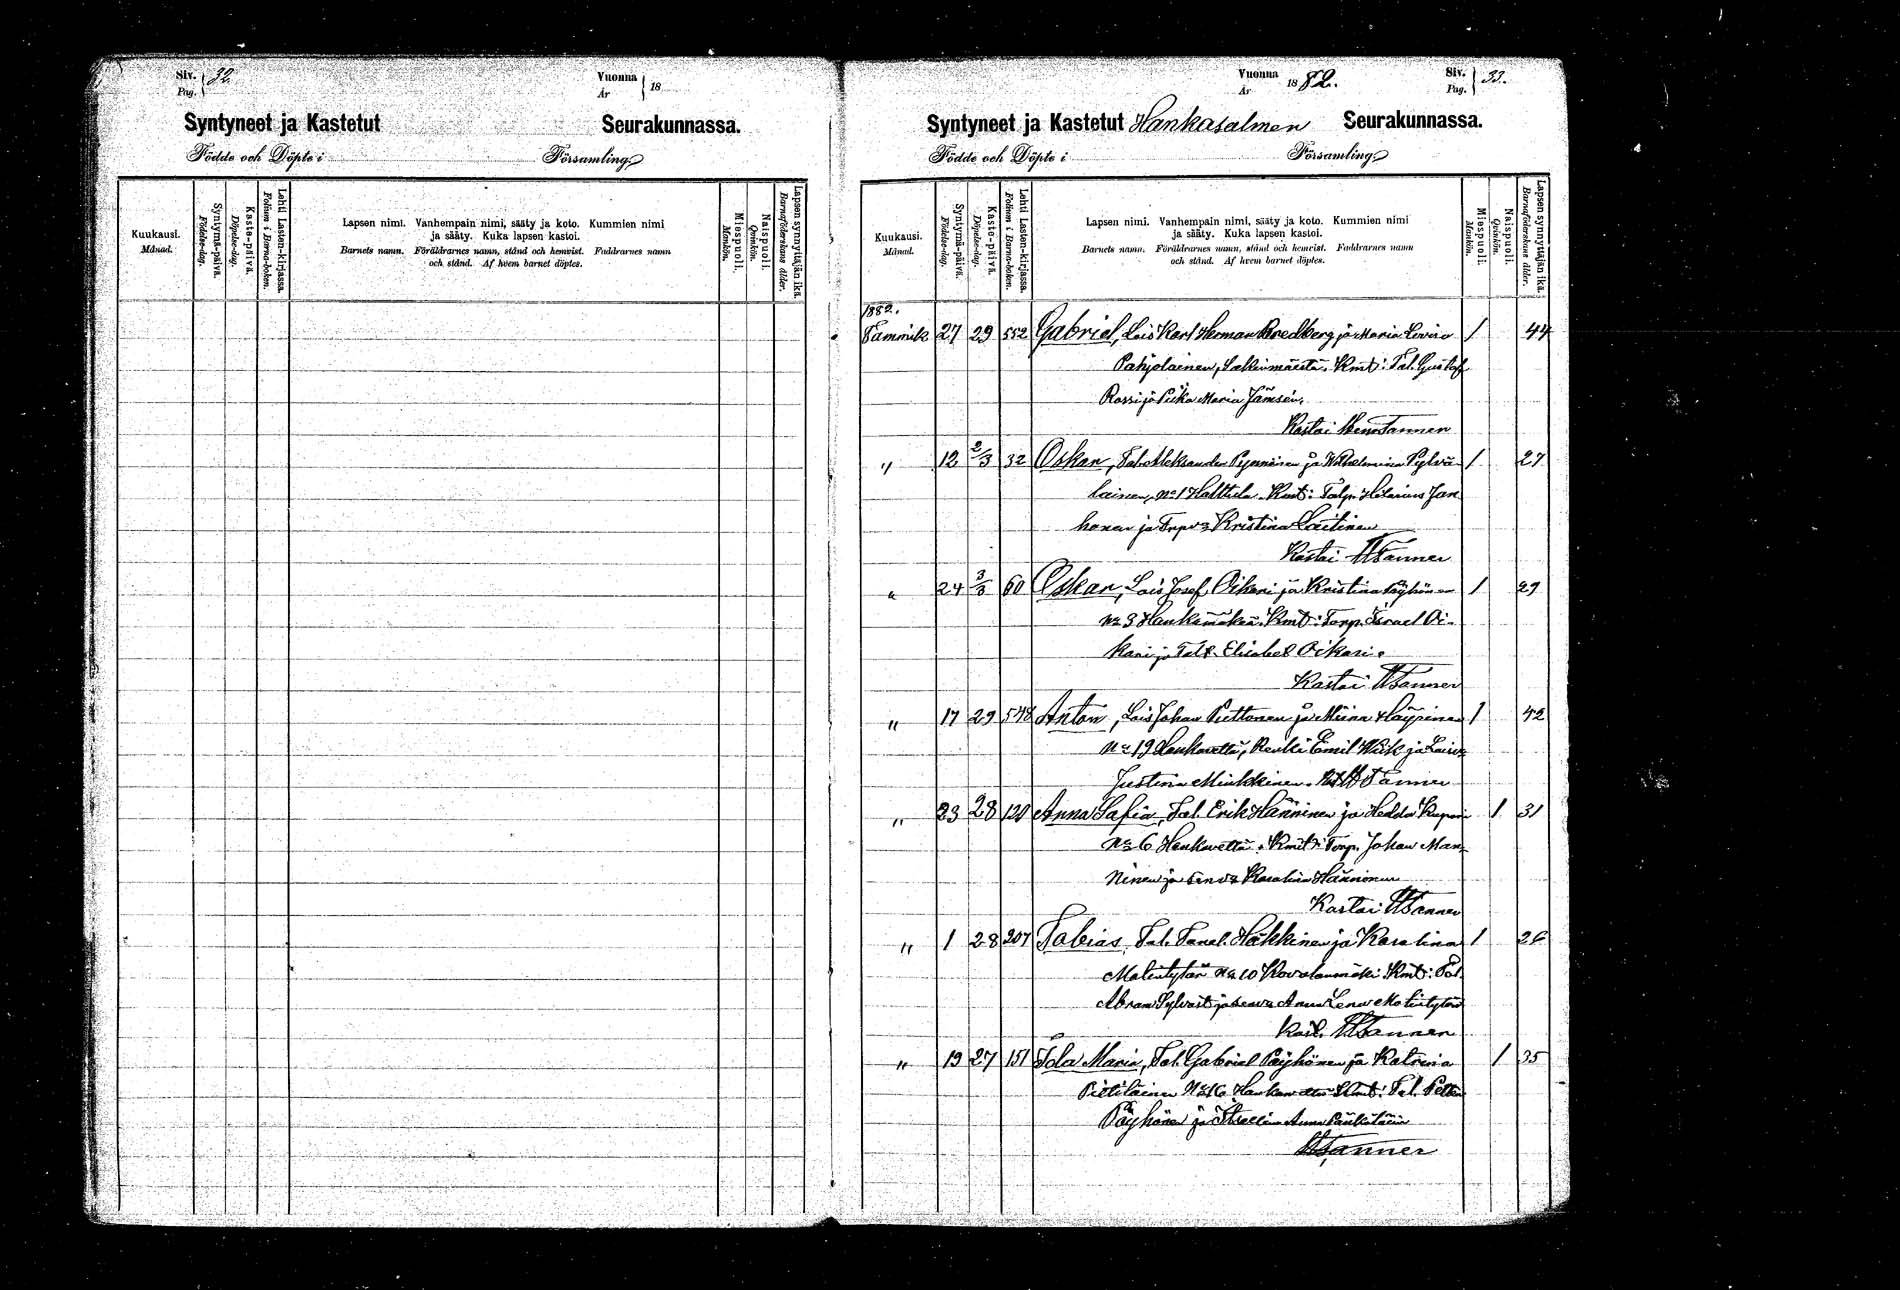 Siv. 32.
Pag.
Vuonna 18
År
Syntyneet ja Kastetut Seurakunnassa.
Födde och Döpte i Församling
Kuukausi.
Månad.
Syntymä-päivä.
Födelse-dag.
Kaste-päivä.
Döpelse-dag.
Lehti Lasten-kirjassa.
Folium i Barna-boken.
Lapsen nimi. Vanhempain nimi, sääty ja koto. Kummien nimi
ja sääty. Kuka lapsen kastoi.
Barnets namn. Föräldrarnes namn, stånd och hemvist. Faddrarnes namn
och stånd. Af hvem barnet döptes.
Miespuoli.
Mankön.
Naispuoli.
Qvinkön.
Lapsen synnyttäjän ikä.
Barnaföderskans ålder.
Vuonna 1882.
År
Siv. 33.
Pag.
Syntyneet ja Kastetut Hankasalmen Seurakunnassa.
Födde och Döpte i Församling
Kuukausi.
Månad.
Syntymä-päivä.
Födelse-dag.
Kaste-päivä.
Döpelse-dag.
Lehti Lasten-kirjassa.
Folium i Barna-boken.
Lapsen nimi. Vanhempain nimi, sääty ja koto. Kummien nimi
ja sääty. Kuka lapsen kastoi.
Barnets namn. Föräldrarnes namn, stånd och hemvist. Faddrarnes namn
och stånd. Af hvem barnet döptes.
Miespuoli.
Mankön.
Naispuoli.
Qvinkön.
Lapsen synnyttäjän ikä.
Barnaföderskans ålder.
1882.
Tammik 27 29 552 Gabriel, Lois Karl Herman Bredberg ja Maria Lovisa 1 44
Pohjolainen, Kmt: Tal. Gustaf
Rossi ja Piika Maria Jämsén.
Kastoi Tanner
" 12 2/3 32 Oskar, Tal. Aleksander Pynnönen ja Wilhelmina Pylvä- 1 27
läinen, No 1 Halttula. Kmt: Talp. Hilarius Jan
honen ja Kristina Laitinen
Kastoi Tanner
" 24 3/3 60 Oskar, Lois Josef Oikari ja Kristina Pöyhönen 1 29
No 3 Hankamäkiä. Kmt: Torp. Israel Oi-
kari ja Elisabet Oikari.
Kastoi Tanner
" 17 29 548 Anton, Lois Johan Puttonen ja Miina Häyrinen 1 42
No 19 Hankavettä, Renki Emil Wiik ja
Justina Minkkinen. Tanner
" 23 28 120 Anna Sofia, Tal. Erik Hänninen ja Hedda 1 31
No 6 Hankavettä. Kmt: Torp. Johan Man-
ninen ja sen v:o Karolina Hänninen
Kastoi Tanner
" 1 28 207 Tobias, Tal. Tanel Häkkinen ja Karolina 1 26
Matintytär No 10 Kovalanmäki Kmt: Tal.
Abram ja sen v:o Anna Lena Matintytär
Kast. Tanner
" 19 27 151 Ida Maria, Tal. Gabriel Pöyhönen ja Katrina 1 35
Pietiläinen No 16 Hankavettä Kmt: Tal. Petter
Pöyhönen ja Anna
Tanner